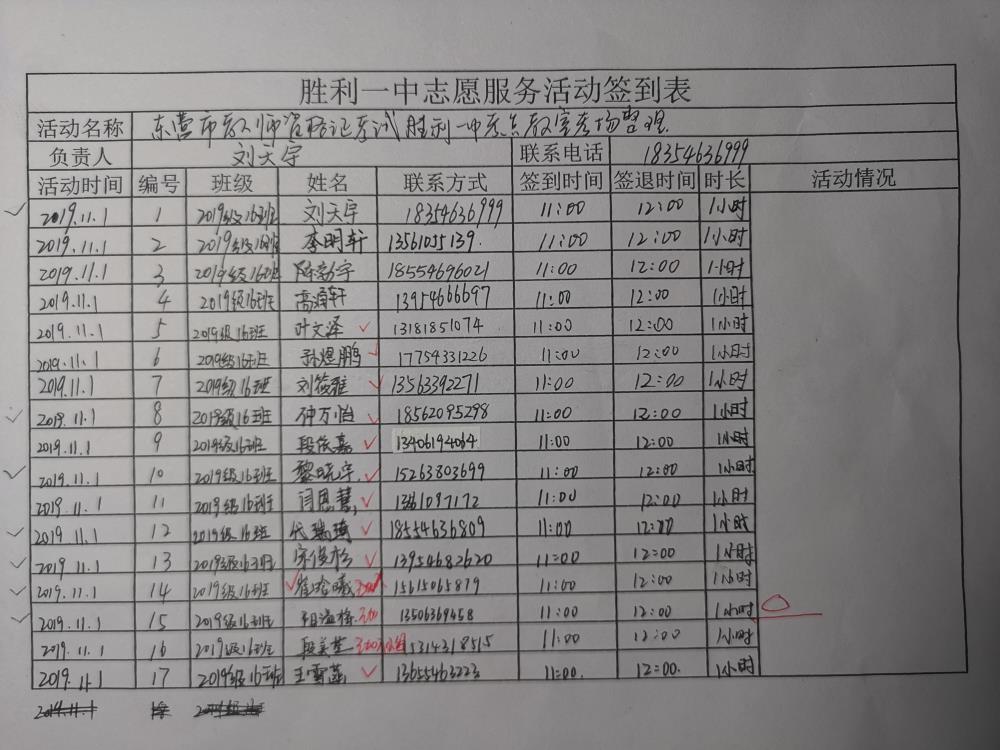 胜利一中志愿服务活动签到表
活动名称 东营市教师资格证考试胜利一中考点教室考场整理
负责人 刘天宇 联系电话 18354636999
活动时间 编号 班级 姓名 联系方式 签到时间 签退时间 时长 活动情况
2019.11.1 1 2019级16班 刘天宇 18354636999 11:00 12:00 1小时
2019.11.1 2 2019级16班 李明轩 13561055139. 11:00 12:00 1小时
2019.11.1 3 2019级16班 陈勃宇 18554696021 11:00 12:00 1小时
2019.11.1 4 2019级16班 高源轩 13954666697 11:00 12:00 1小时
2019.11.1 5 2019级16班 叶文泽 13181851074 11:00 12:00 1小时
2019.11.1 6 2019级16班 孙煜鹏 17754331226 11:00 12:00 1小时
2019.11.1 7 2019级16班 刘筱雅 13563392271 11:00 12:00 1小时
2019.11.1 8 2019级16班 仲万怡 18562095298 11:00 12:00 1小时
2019.11.1 9 2019级16班 段依嘉 13406194064 11:00 12:00 1小时
2019.11.1 10 2019级16班 黎晓宇 15263803699 11:00 12:00 1小时
2019.11.1 11 2019级16班 闫恩慧 11:00 12:00 1小时
2019.11.1 12 2019级16班 代瑞琦 18554636809 11:00 12:00 1小时
2019.11.1 13 2019级16班 宋俊杉 13954682620 11:00 12:00 1小时
2019.11.1 14 2019级16班 15615065879 11:00 12:00 1小时
2019.11.1 15 2019级16班 13506369458 11:00 12:00 1小时
2019.11.1 16 2019级16班 15314318515 11:00 12:00 1小时
2019.11.1 17 2019级16班 王雪莲 13655463223 11:00. 12:00. 1小时
2019.11.1